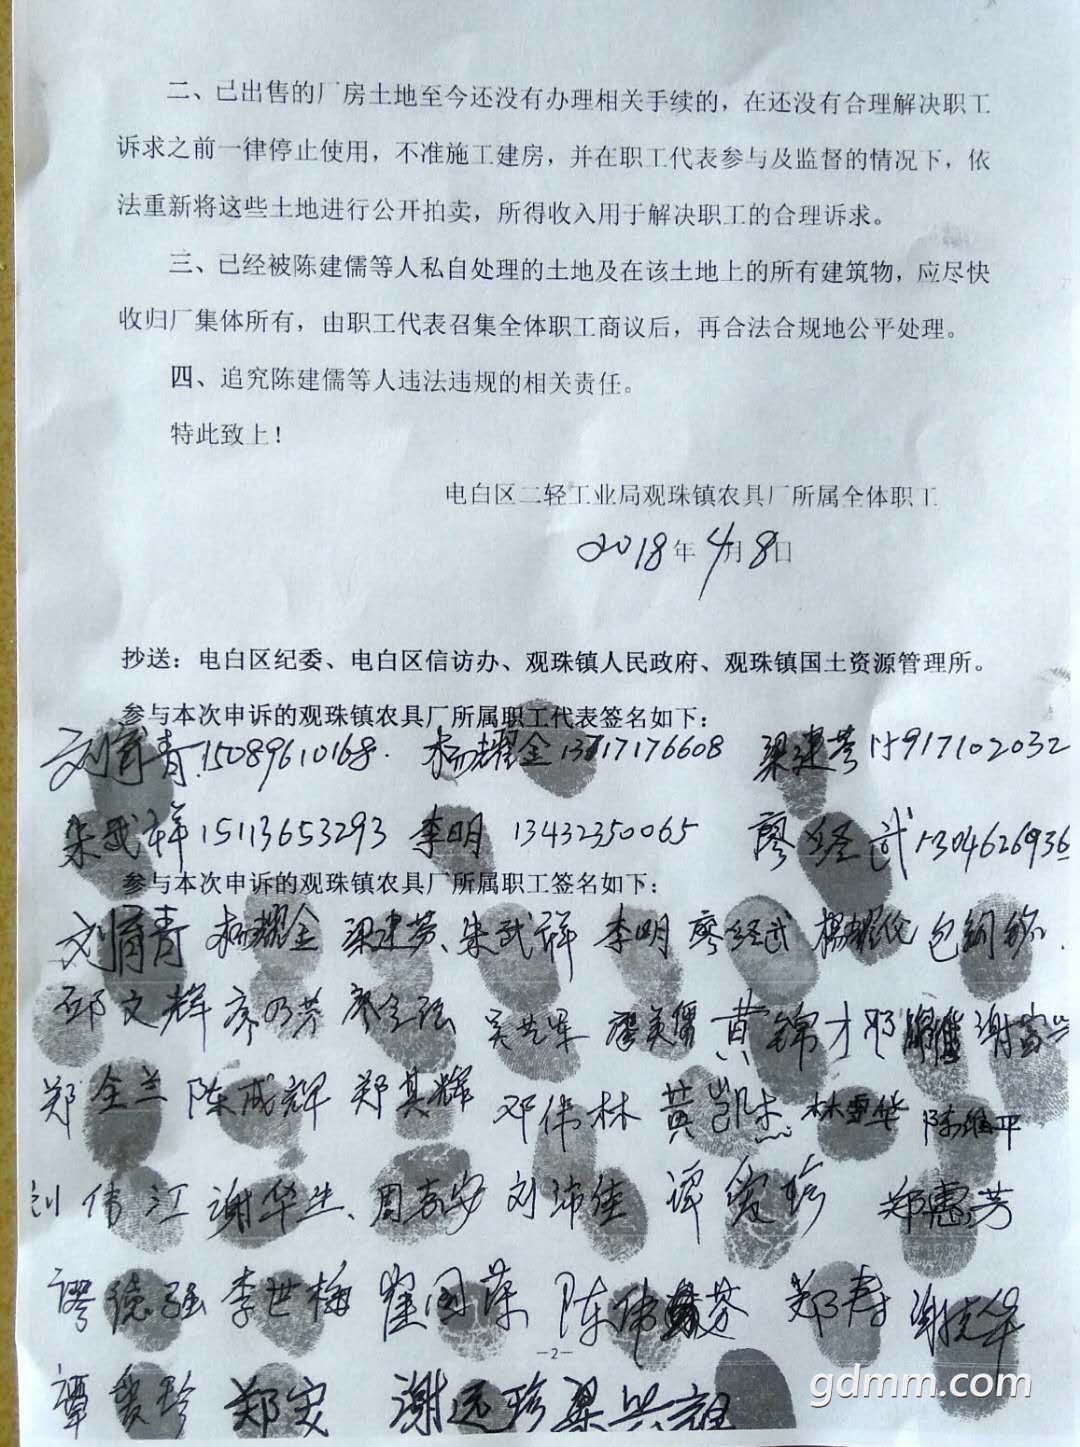 二、已出售的厂房土地至今还没有办理相关手续的，在还没有合理解决职工
诉求之前一律停止使用，不准施工建房，并在职工代表参与及监督的情况下，依
法重新将这些土地进行公开拍卖，所得收入用于解决职工的合理诉求。
三、已经被陈建儒等人私自处理的土地及在该土地上的所有建筑物，应尽快
收归厂集体所有，由职工代表召集全体职工商议后，再合法合规地公平处理。
四、追究陈建儒等人违法违规的相关责任。
特此致上！
电白区二轻工业局观珠镇农具厂所属全体职工
2018年4月8日
抄送：电白区纪委、电白区信访办、观珠镇人民政府、观珠镇国土资源管理所。
参与本次申诉的观珠镇农具厂所属职工代表签名如下：
15089610168. 杨耀金 梁建芳 15917102032
朱武祥 15113653293 李明 13432350065 廖经武 1304626936
参与本次申诉的观珠镇农具厂所属职工签名如下：
杨耀金 梁建芳、朱武祥 李明 廖经武 杨耀伦
邱文辉 廖乃芳 廖全强 黄锦才 谢富兴
郑全兰 陈成辉 郑其辉 邓伟林 黄凯杰 林雪华
刘伟江 谢华生、周嘉安 刘沛佳 郑惠芳
李世梅 陈伟 芬
—2—
郑实 谢远珍 梁兴
gdmm.com